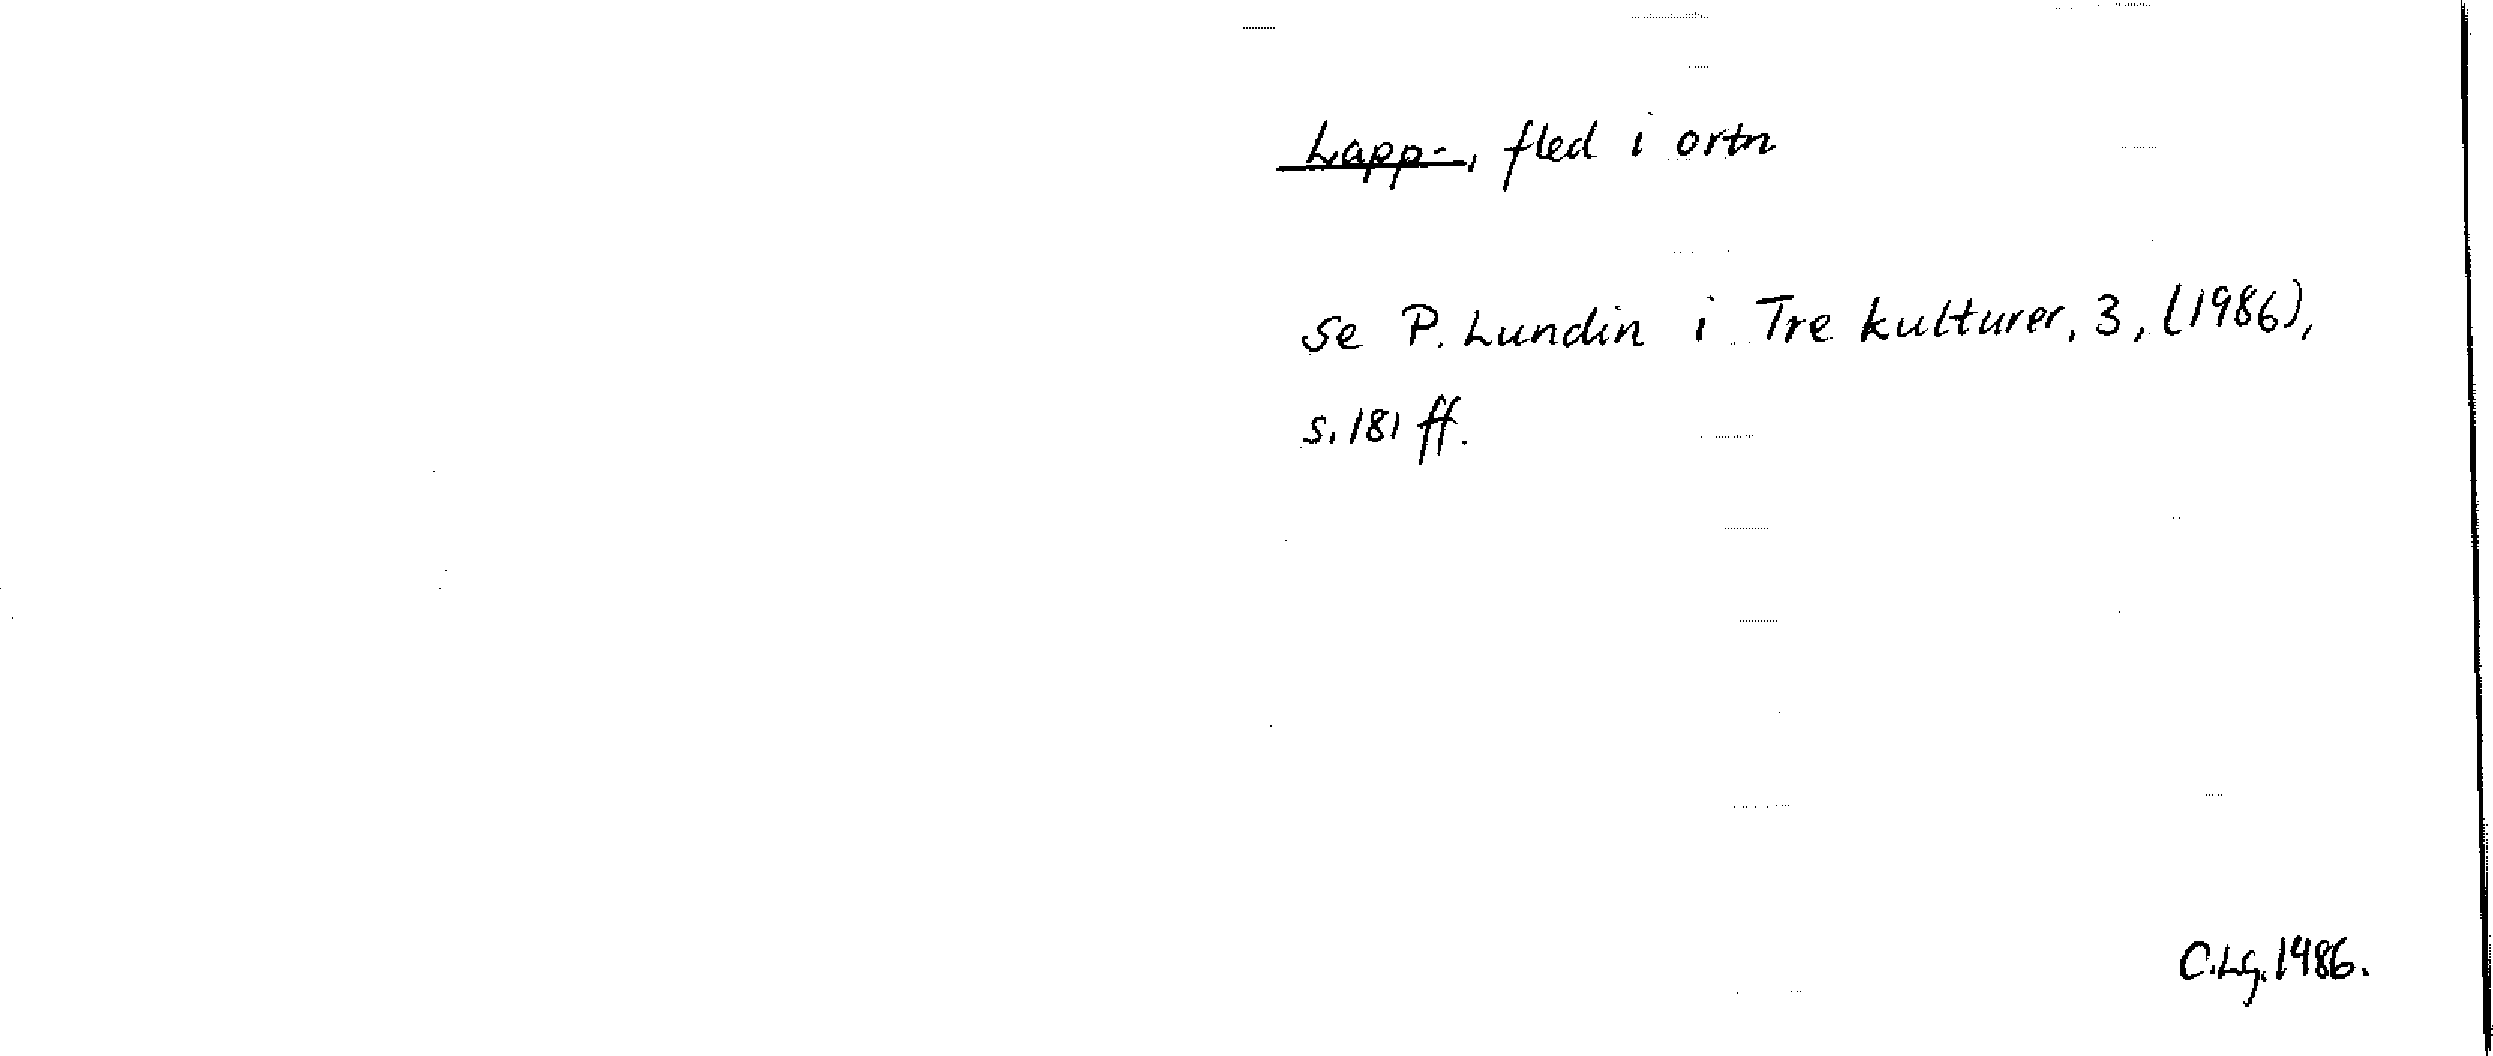 Lapp-, fled i ortn
se P. Lundin i Tre kulturer, 3, (1986),
s. 181 ff.
C.Lg. 1986.